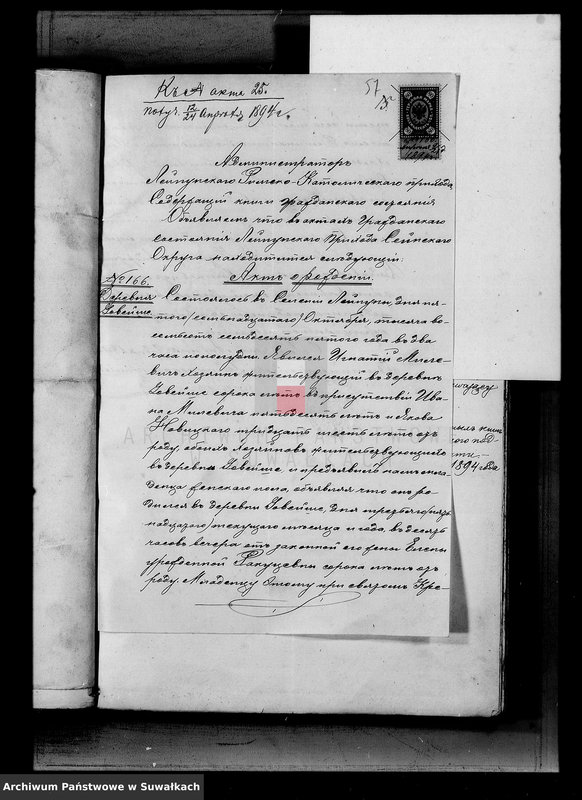 Къ акта 25.
получ. 12/24 Апрѣля 1894 г.
57
Администраторъ
Лейпунскаго Римско-Католическаго прихода,
Содержащій книги гражданскаго состоянія
Объявляетъ что въ актахъ Гражданскаго
состоянія Лейпунскаго Прихода Сейнскаго
Округа находится слѣдующій:
Актъ о рожденіи
№ 166.
Деревня
Довейше
Состоялось въ Селеніи Лейпуны, дня пя-
того /семьнадцатаго/ Октября, тысяча во-
семьсотъ семьдесятъ пятого года въ два
часа пополудни. Явился Игнатій Миле-
вичъ хозяинъ жительствующій въ деревнѣ
Довейше сорока лѣтъ въ присутствіи Ива-
на Милевича пятьдесятъ лѣтъ и Якова
Новицкаго тридцать шесть лѣтъ отъ
роду, обоихъ хозяиновъ жительствующихъ
въ деревнѣ Довейше, и предъявилъ намъ мла-
денца женскаго пола, объявляя что онъ ро-
дился въ деревнѣ Довейше, дня третьяго /пят-
надцатаго/ текущаго мѣсяца и года, въ десять
часовъ вечера отъ законной его жены Елены
урожденной сорока лѣтъ отъ
роду. Младенцу этому при святомъ Кре-
1894 года
ARCHIWUM
Archiwum Państwowe w Suwałkach